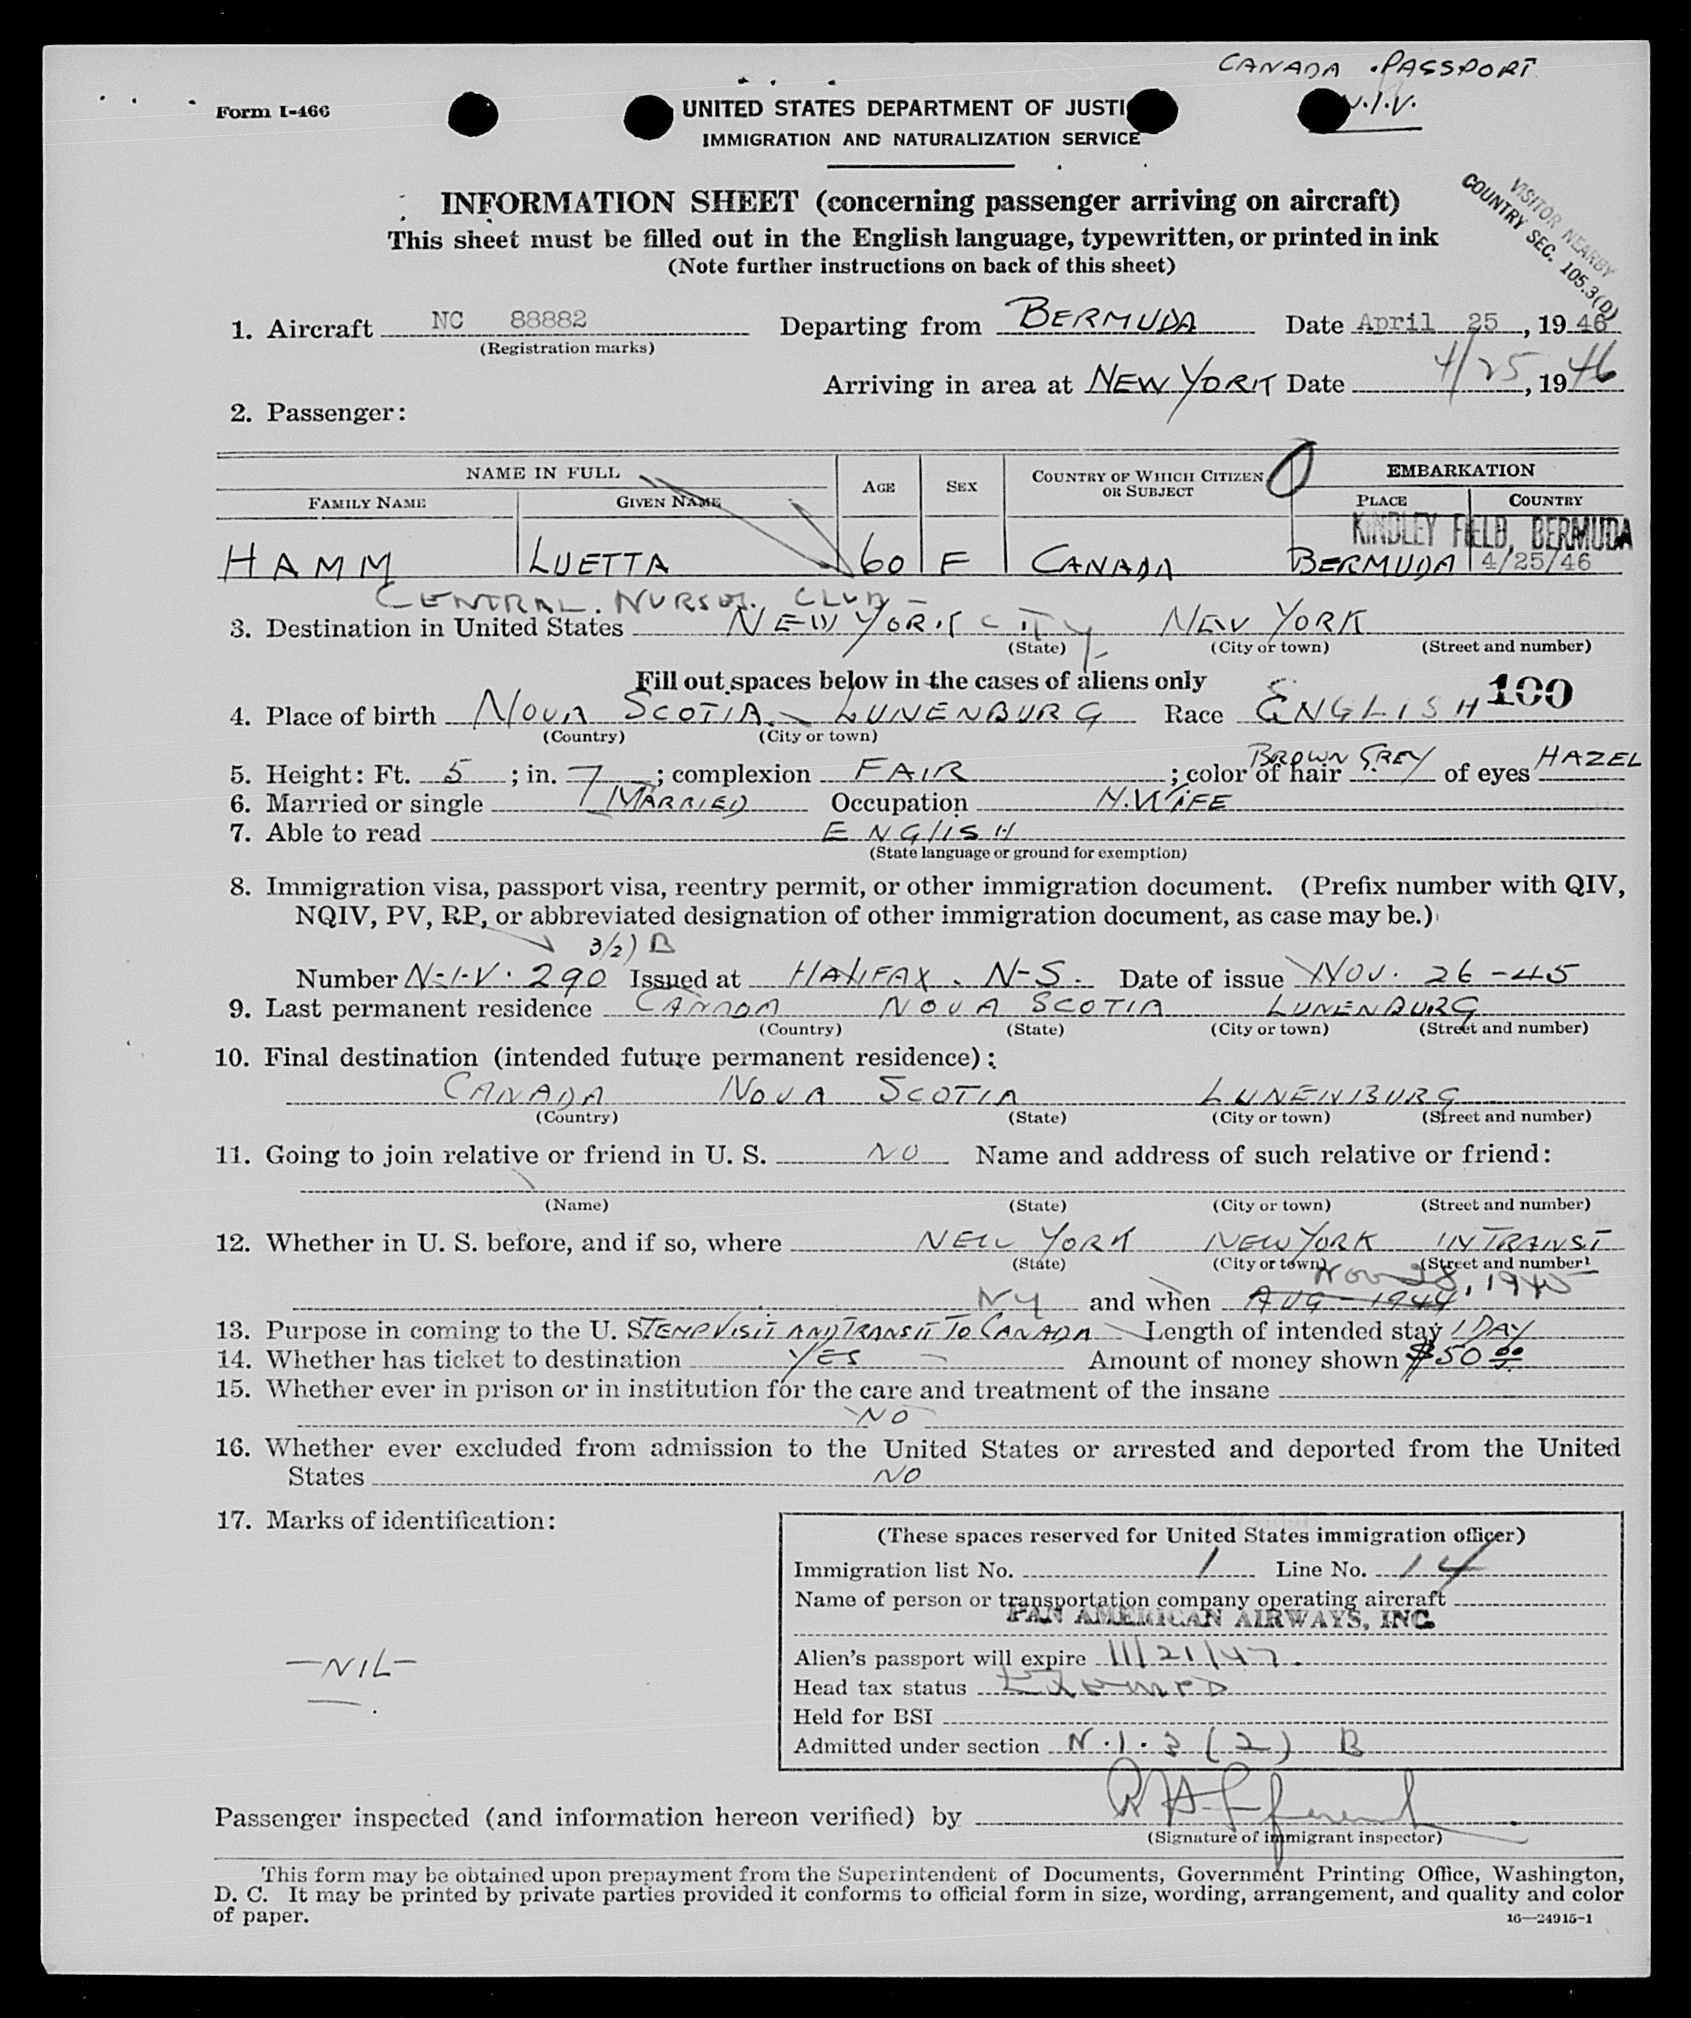 CANADA . PASSPORT
N.I.V.
Form I-466
UNITED STATES DEPARTMENT OF JUSTI
IMMIGRATION AND NATURALIZATION SERVICE
VISITOR NEARBY
COUNTRY SEC. 105.3(D)
INFORMATION SHEET (concerning passenger arriving on aircraft)
This sheet must be filled out in the English language, typewritten, or printed in ink
(Note further instructions on back of this sheet)
1. Aircraft NC 88882 Departing from BERMUDA Date April 25, 1946
(Registration marks)
Arriving in area at NEW YORK Date 4/25, 1946
2. Passenger:
NAME IN FULL AGE SEX COUNTRY OF WHICH CITIZEN OR SUBJECT EMBARKATION
FAMILY NAME GIVEN NAME PLACE COUNTRY
KINDLEY FIELD, BERMUDA
HAMM LUETTA 60 F CANADA BERMUDA 4/25/46
CENTRAL. NURSES. CLUB -
3. Destination in United States NEW YORK CITY NEW YORK
(State) (City or town) (Street and number)
Fill out spaces below in the cases of aliens only
4. Place of birth NOVA SCOTIA. LUNENBURG Race ENGLISH 100
(Country) (City or town)
5. Height: Ft. 5; in. 7; complexion FAIR; color of hair BROWN GREY of eyes HAZEL
6. Married or single MARRIED Occupation H.WIFE
7. Able to read ENGLISH
(State language or ground for exemption)
8. Immigration visa, passport visa, reentry permit, or other immigration document. (Prefix number with QIV,
NQIV, PV, RP, or abbreviated designation of other immigration document, as case may be.)
3/2) B
Number N-I-V. 290 Issued at HALIFAX. N-S. Date of issue NOV. 26-45
9. Last permanent residence CANADA NOVA SCOTIA LUNENBURG
(Country) (State) (City or town) (Street and number)
10. Final destination (intended future permanent residence):
CANADA NOVA SCOTIA LUNENBURG
(Country) (State) (City or town) (Street and number)
11. Going to join relative or friend in U. S. NO Name and address of such relative or friend:
(Name) (State) (City or town) (Street and number)
12. Whether in U. S. before, and if so, where NEW YORK NEW YORK IN TRANSIT
(State) (City or town) (Street and number)
Nov 28, 1945
NY and when AUG-1944
13. Purpose in coming to the U. S. TEMP VISIT AND TRANSIT TO CANADA Length of intended stay 1 DAY
14. Whether has ticket to destination YES - Amount of money shown $50 00
15. Whether ever in prison or in institution for the care and treatment of the insane
NO
16. Whether ever excluded from admission to the United States or arrested and deported from the United
States NO
17. Marks of identification:
-NIL-
(These spaces reserved for United States immigration officer)
Immigration list No. 1 Line No. 14
Name of person or transportation company operating aircraft
PAN AMERICAN AIRWAYS, INC.
Alien's passport will expire 11/21/47.
Head tax status
Held for BSI
Admitted under section N.I.3(2) B
Passenger inspected (and information hereon verified) by
(Signature of immigrant inspector)
This form may be obtained upon prepayment from the Superintendent of Documents, Government Printing Office, Washington,
D. C. It may be printed by private parties provided it conforms to official form in size, wording, arrangement, and quality and color
of paper.
16—24915-1